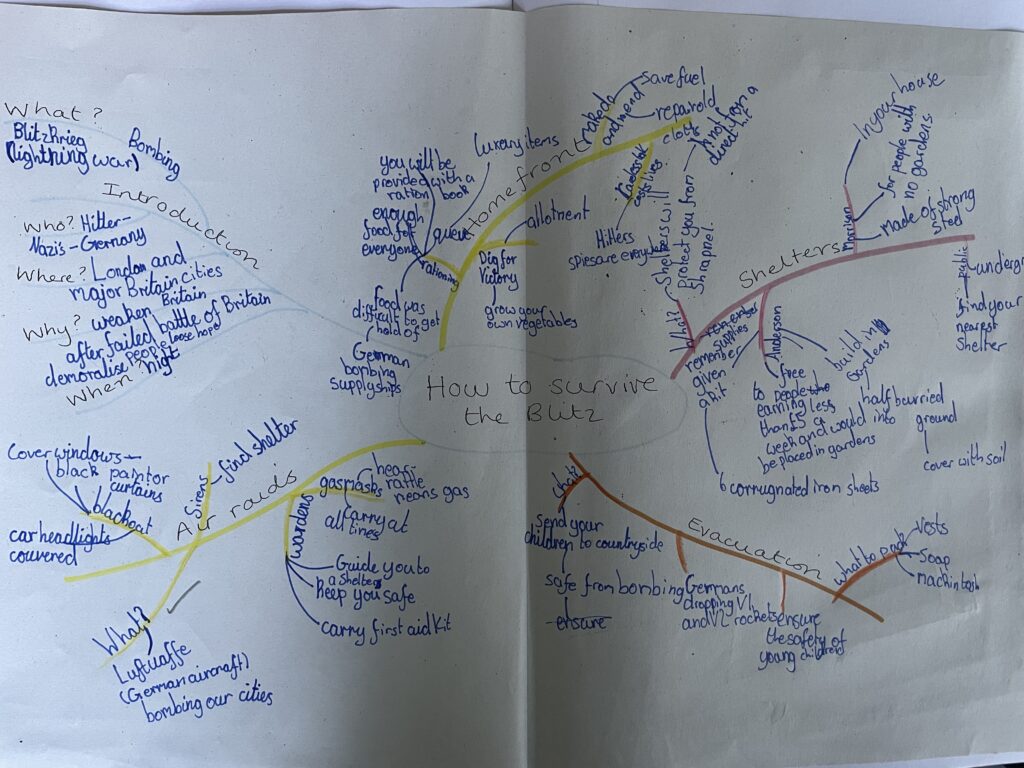 How to survive
the Blitz
Introduction
What?
Blitzkrieg
(lightning war)
Bombing
Who? Hitler-
Nazi's - Germany
Where? London and
major Britain cities
Why? weaken Britain
after failed battle of Britain
demoralise people loose hope
When? night
Homefront
rationing
you will be
provided with a
ration book
luxury items
enough
food for
everyone
queue
food was
difficult to get
hold of
German
bombing
supply ships
Dig for
Victory
allotment
grow your
own vegetables
make do
and mend
save fuel
repair old
clothes
costs lives
Hitlers
spies are everywhere
Shelters
What?
Shelters will
protect you from
shrapnel.
not from a
direct hit
remember
supplies
remember
given
a kit
Anderson
free
to people the
earning less
than £5 a
week and would into
be placed in gardens
build in
Gardens
half burried
ground
cover with soil
6 corrugnated iron sheets
In your house
for people with
no gardens
made of strong
steel
public
undergr
find your
nearest
shelter
Air raids
Sirens
find shelter
blackout
cover windows-
black paint or
curtains
car headlights
couvered
What?
Luftwaffe
(German aircraft)
bombing our cities
wardens
Guide you to
a shelter
keep you safe
carry first aid kit
gas masks
hear
rattle
means gas
carry at
all times
Evacuation
what?
send your
children to countryside
safe from bombing
ensure
Germans
dropping V1
and V2 rockets
ensure
the safety of
young children
what to pack
vests
soap
mackintosh